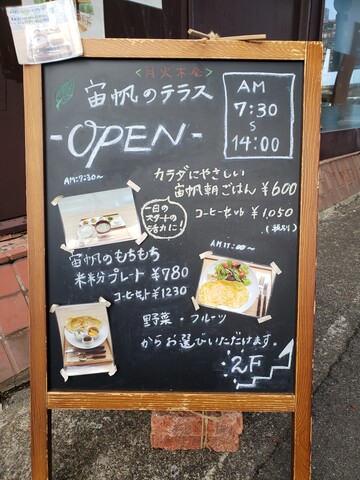 <月火木金>
宙帆のテラス
-OPEN-
AM
7:30
S
14:00
AM7:30〜
カラダにやさしい
宙帆朝ごはん ¥600
コーヒーセット ¥1,050
(税別)
一日の
スタートの
活力に!
AM11:00〜
宙帆のもちもち
米粉プレート ¥780
コーヒーセット ¥1230
野菜・フルーツ
からお選びいただけます。
2F